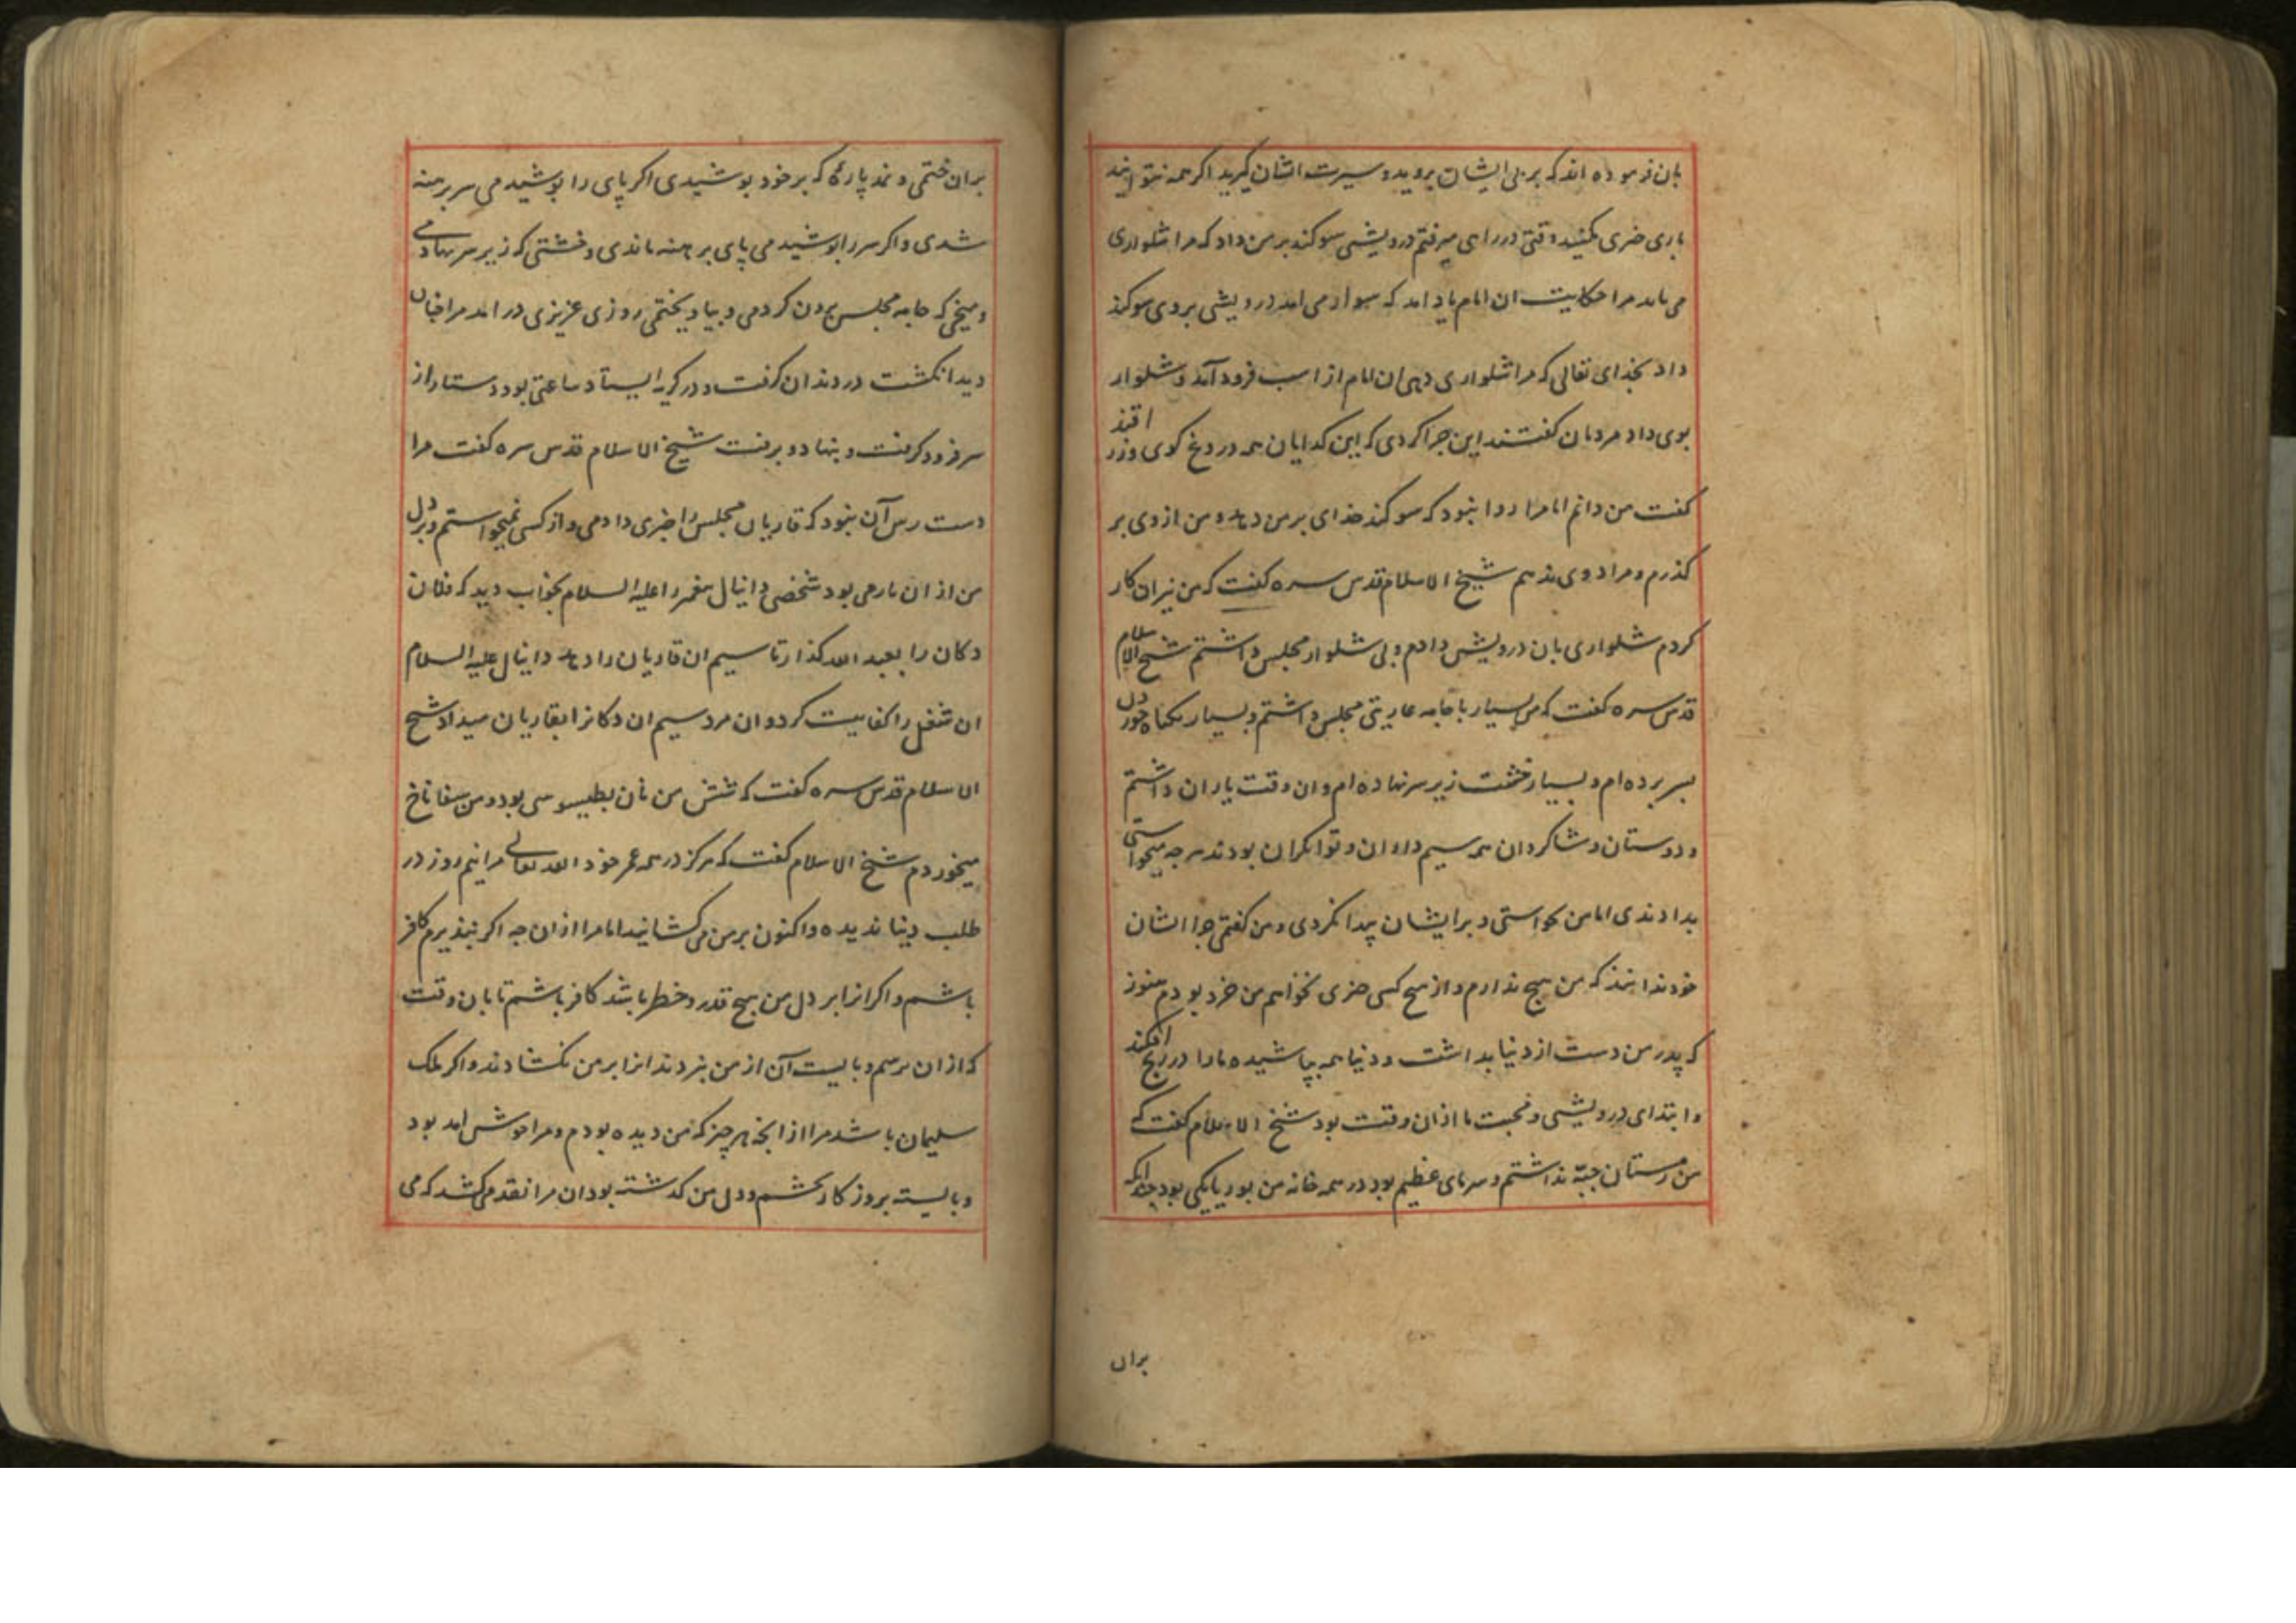 بان فرموده اند که بر پی ایشان بروید و سیرت ایشان گیرید اگر همه نتوانید
باری چیزی بکنید وقتی در راهی میرفتم درویشی سوکند بر من داد که مرا شلواری
می باید مرا حکایت ان امام یاد امد که سوار می امد درویشی بر وی سوکند
داد بخدای تعالی که مرا شلواری دهی ان امام از اسب فرود آمد و شلوار
بوی داد مردمان کفتند این چرا کردی که این کدایان همه دروغ کوی و زر
کفت من دانم اما مرا روا نبود که سوکند خدای بر من دهد و من از وی بر
کذرم و مراد وی ندهم شیخ الاسلام قدس سره کفت که من نیز ان کار
کردم شلواری بان درویش دادم و بی شلوار مجلس داشتم شیخ الاسلام
قدس سره کفت که من بسیار با جامه عاریتی مجلس داشتم و بسیار بکیاه خوردن
بسر برده ام و بسیار خشت زیر سر نهاده ام و ان وقت یاران داشتم
و دوستان و شاکردان همه سیم داران و توانکران بودند هر چه میخواستی
بدادندی اما من نخواستی و بر ایشان پیدا نکردی و من کفتمی چرا ایشان
خود ندانند که من هیچ ندارم و از هیچ کس چیزی نخواهم من خرد بودم هنوز
که پدر من دست از دنیا بداشت و دنیا همه بپاشید و ما را در رنج افکند
و ابتدای درویشی و محبت ما ازان وقت بود شیخ الاسلام کفت که
من زمستان جبّه نداشتم و سرمای عظیم بود در همه خانه من بوریایکی بود چندانکه
بران
بران خفتمی و نمد پاره که بر خود پوشیدی اکر پای را پوشیدمی سر برهنه
شدی و اکر سر را پوشیدمی پای برهنه ماندی و خشتی که زیر سر نهادمی
و میخی که جامه مجلس بیرون کردمی و بیاویختمی روزی عزیزی در امد مرا چنان
دید انکشت در دندان کرفت و در کریه ایستاد ساعتی بود دستار از
سر فرود کرفت و بنهاد و برفت شیخ الاسلام قدس سره کفت مرا
دست رس آن نبود که قاریان مجلس را چیزی دادمی و از کسی نمیخواستم و بر دل
من از ان بارمی بود شخصی دانیال پیغمبر را علیه السلام بخواب دید که فلان
دکان را بعبد الله کذار تا سیم ان قاریان را دهد دانیال علیه السلام
ان شغل را کفایت کرد و ان مرد سیم ان دکانرا بقاریان میداد شیخ
الاسلام قدس سره کفت که شش من نان بطیسوسی بود و من سفاناخ
میخوردم شیخ الاسلام کفت که هرکز در همه عمر خود الله تعالی مرا نیم روز در
طلب دنیا ندیده و اکنون بر من می کشانید اما مرا ازان چه اکر نپذیرم کافر
باشم و اکر انرا بر دل من هیچ قدر و خطر باشد کافر باشم تا بان وقت
که از ان برسم و بایست آن از من نبردند انرا بر من نکشادند و اکر ملک
سلیمان باشد مرا از انچه هر چیز که من دیده بودم و مرا خوش امد بود
و بایسته بروز کار بچشم و دل من کذشته بود ان مرا نقد می کشد که می